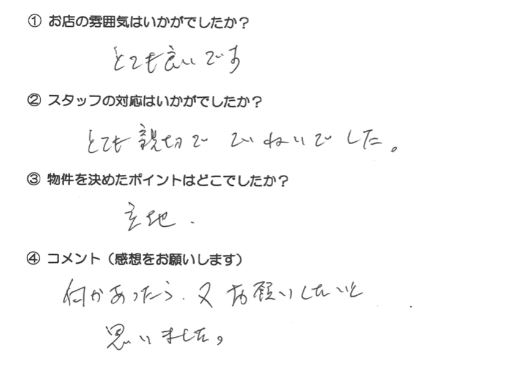 ① お店の雰囲気はいかがでしたか？
とても良いです
② スタッフの対応はいかがでしたか？
とても親切で ていねいでした。
③ 物件を決めたポイントはどこでしたか？
立地.
④ コメント（感想をお願いします）
何かあったら、又 お願いしたいと
思いました。